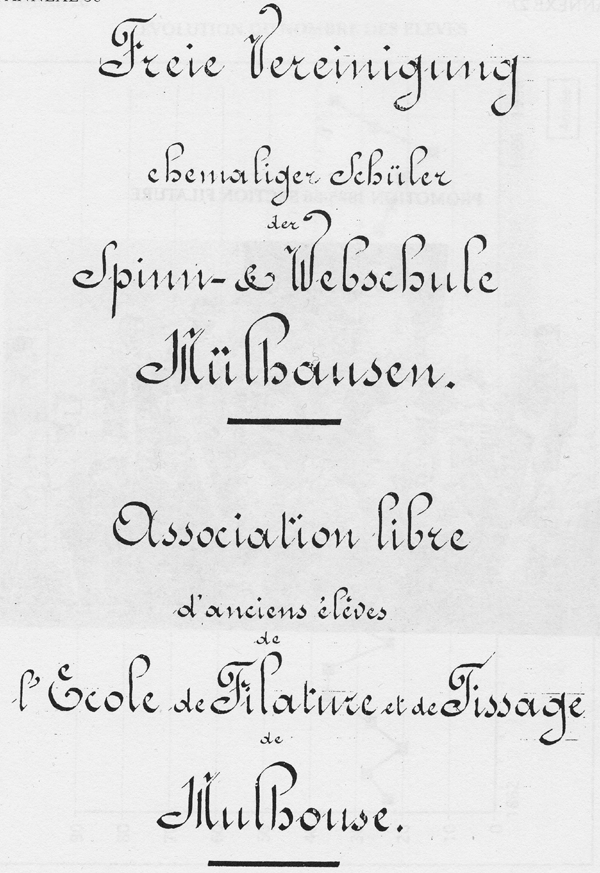 Freie Vereinigung
ehemaliger Schüler
der
Spinn- & Webschule
Mülhausen.
Association libre
d'anciens élèves
de
l'Ecole de Filature et de Tissage
de
Mulhouse.